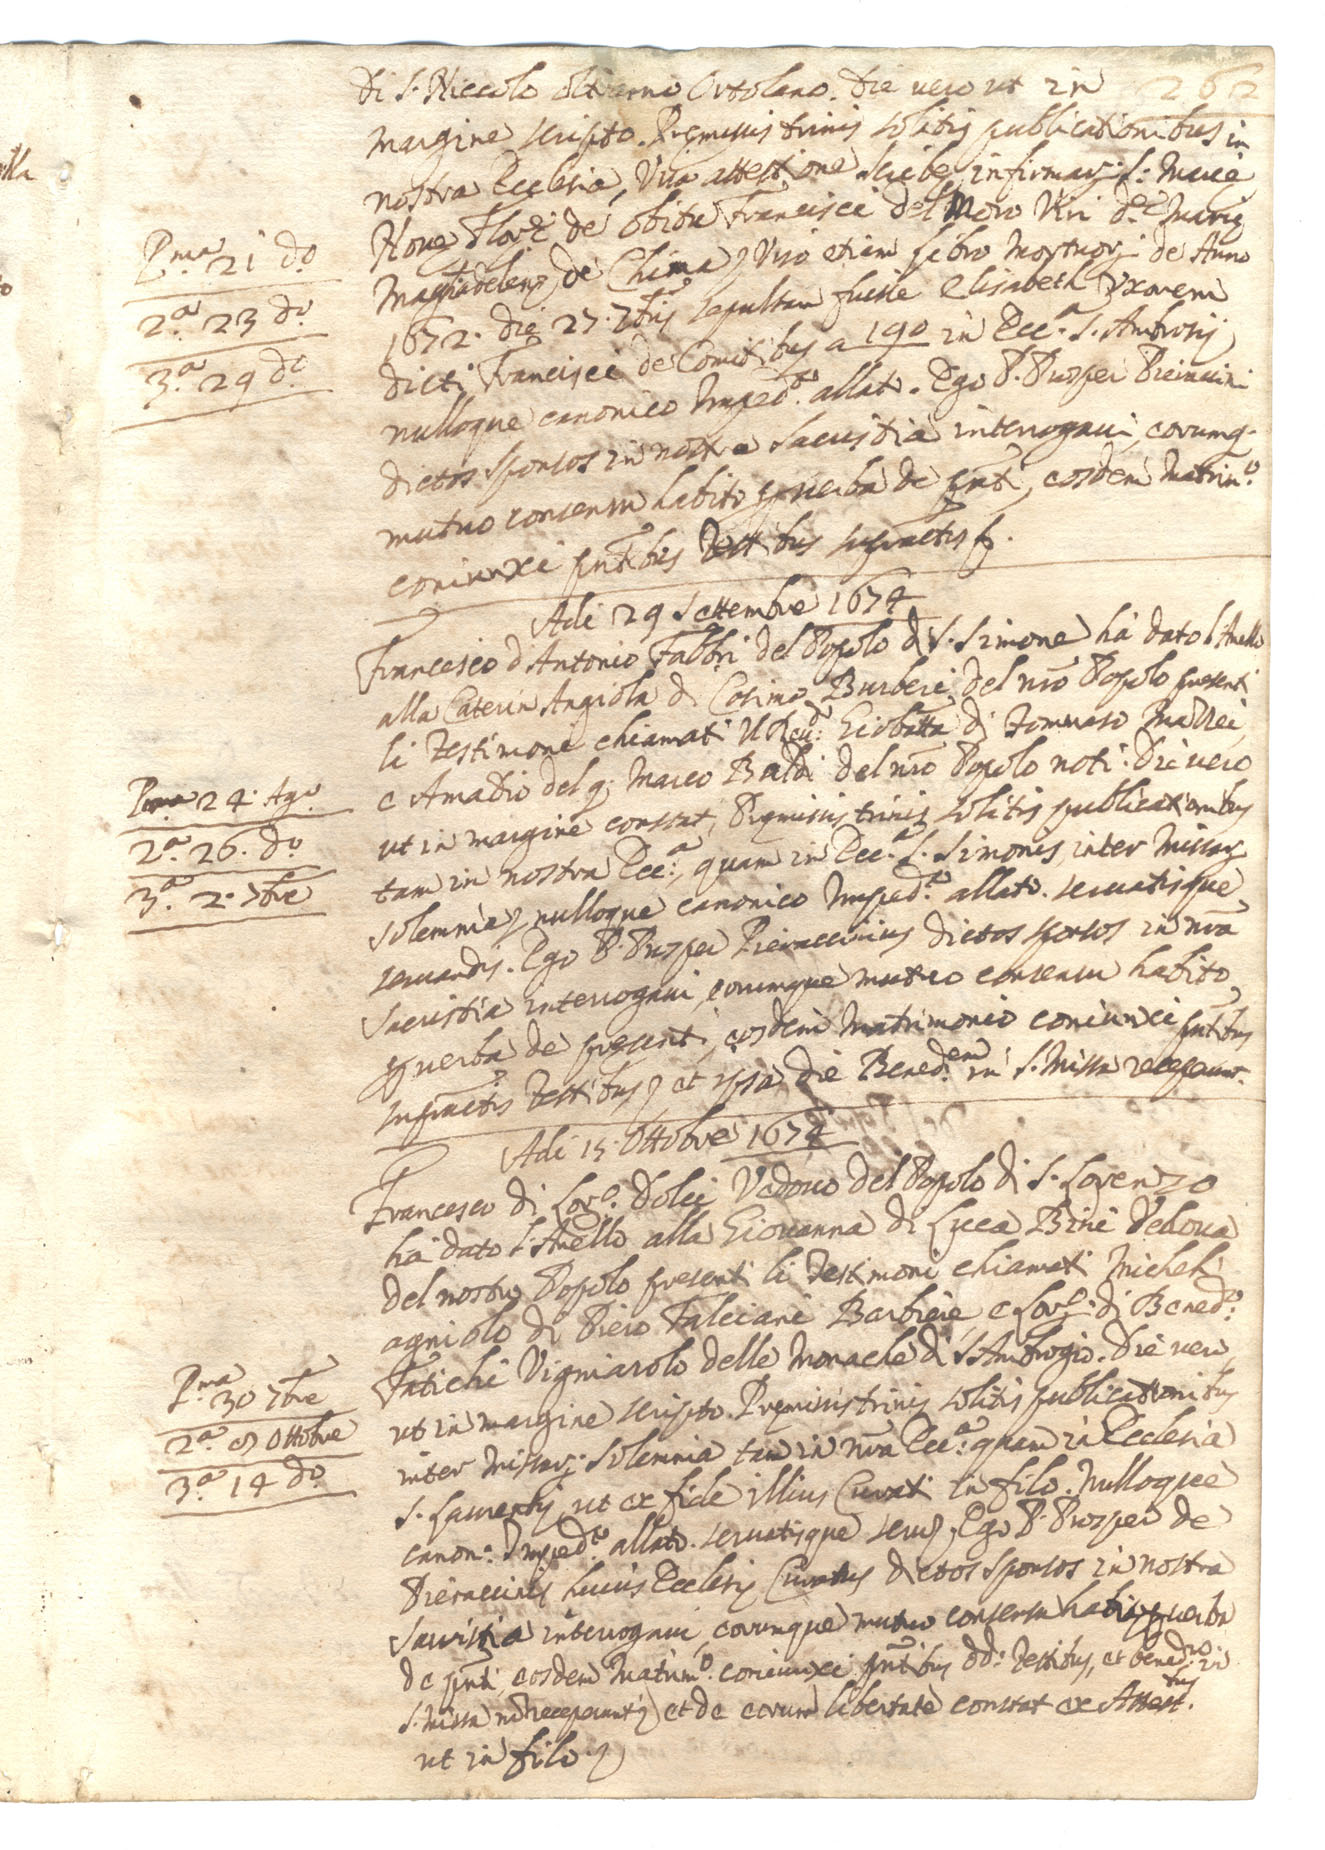 262
di S. Niccolo oltrarno Ortolano. Die vero ut in
margine scripto. Premissis trinis solitis publicationibus in
nostra Ecclesia, Visa attestione Scribe infirmar: S. Marie
Nove Flor.e de obitu Francisci del Moro Viri d.e Marie
Magdalene de Chima, Viso etiam libro Mortuor: de Anno
1672. die 27. 7bris sepultam fuisse Elisabeth Uxorem
dicti Francisci de Comitibus a 190 in Ecc.a S. Ambrosij
nulloque canonico Imped.to allato. Ego P. Prosper Pieraccini
dictos sponsos in nostra Sacristia interrogavi, eorumq.
mutuo consensu habito p verba de pnti, eosdem Matrim.o
coniunxi pntibus testibus supractis p.
Adi 29 Settembre 1674
Francesco d'Antonio Fabbri del Popolo di S. Simone ha dato l'Anello
alla Caterin Angiola di Cosimo Burberi del nro Popolo presenti
li testimoni chiamati Il Reu.do Giobatta di Tommaso Mattei,
e Amadio del q. Marco Baldi del nro Popolo noti. Die vero
ut in margine constat, Premissis trinis solitis publicationibus
tam in nostra Ecc.a, quam in Ecc.a S. Simonis, inter Missar
solemnia, nulloque canonico Imped.to allato. servatisque
servandis. Ego P. Prosper Pieraccinius dictos sponsos in nra
Sacristia interrogavi, eorumque mutuo consensu habito
p verba de presenti, eosdem Matrimonio coniunxi pntibus
supractis testibus, et ipsa die Bened.em in S. Missa receperunt.
Adi 15 Ottobre 1674
Francesco di Lor.o Dolci Vedovo del Popolo di S. Lorenzo
ha dato l'Anello alla Giovanna di Luca Bini Vedova
del nostro Popolo presenti li testimoni chiamati Michel
agniolo di Piero Falciani Barbiere e Lor.o di Bened.o
Fatichi Vigniarolo delle Monache di S. Ambrogio. Die vero
ut in margine scripto. Premissis trinis solitis publicationibus
inter Missar: solemnia tam in nra Ecc.a quam in Ecclesia
S. Laurentij, ut ex fide illius Curati in filo. Nulloque
canon.o Imped.to allato. servatisque serv, Ego P. Prosper de
Pieraccinis huius Ecclesie Curatus dictos sponsos in nostra
Sacristia interrogavi, eorumque mutuo consensu habito p verba
de pnti, eosdem Matrim.o coniunxi pntibus dd: testibus, et bened.em in
S. Missa no receperunt, et de eorum libertate constat ex Attest.bus
ut in filo.
P.ma 21 d.o
2.a 23 d.o
3.a 29 d.o
P.ma 24. Ag.o
2.a 26. d.o
3.a 2. 7bre
P.ma 30 7bre
2.a 7 Ottobre
3.a 14 d.o